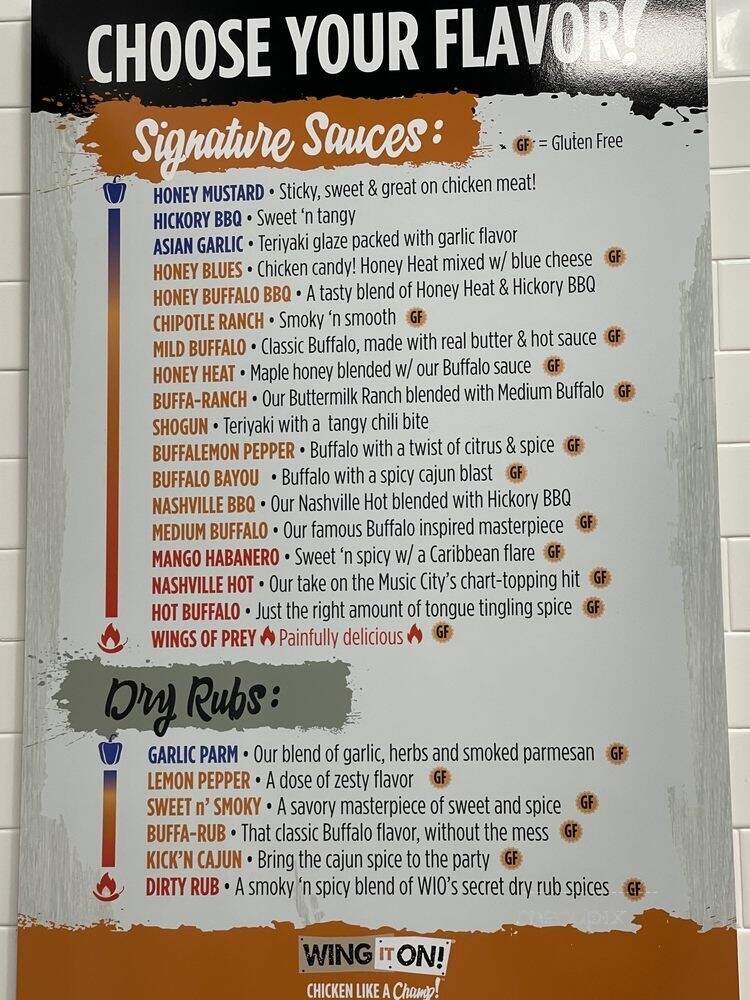 CHOOSE YOUR FLAVOR!
Signature Sauces:
GF = Gluten Free
HONEY MUSTARD • Sticky, sweet & great on chicken meat!
HICKORY BBQ • Sweet 'n tangy
ASIAN GARLIC • Teriyaki glaze packed with garlic flavor
HONEY BLUES • Chicken candy! Honey Heat mixed w/ blue cheese GF
HONEY BUFFALO BBQ • A tasty blend of Honey Heat & Hickory BBQ
CHIPOTLE RANCH • Smoky 'n smooth GF
MILD BUFFALO • Classic Buffalo, made with real butter & hot sauce GF
HONEY HEAT • Maple honey blended w/ our Buffalo sauce GF
BUFFA-RANCH • Our Buttermilk Ranch blended with Medium Buffalo GF
SHOGUN • Teriyaki with a tangy chili bite
BUFFALEMON PEPPER • Buffalo with a twist of citrus & spice GF
BUFFALO BAYOU • Buffalo with a spicy cajun blast GF
NASHVILLE BBQ • Our Nashville Hot blended with Hickory BBQ
MEDIUM BUFFALO • Our famous Buffalo inspired masterpiece GF
MANGO HABANERO • Sweet 'n spicy w/ a Caribbean flare GF
NASHVILLE HOT • Our take on the Music City's chart-topping hit GF
HOT BUFFALO • Just the right amount of tongue tingling spice GF
WINGS OF PREY Painfully delicious GF
Dry Rubs:
GARLIC PARM • Our blend of garlic, herbs and smoked parmesan GF
LEMON PEPPER • A dose of zesty flavor GF
SWEET n' SMOKY • A savory masterpiece of sweet and spice GF
BUFFA-RUB • That classic Buffalo flavor, without the mess GF
KICK'N CAJUN • Bring the cajun spice to the party GF
DIRTY RUB • A smoky 'n spicy blend of WIO's secret dry rub spices GF
WING IT ON!
CHICKEN LIKE A Champ!